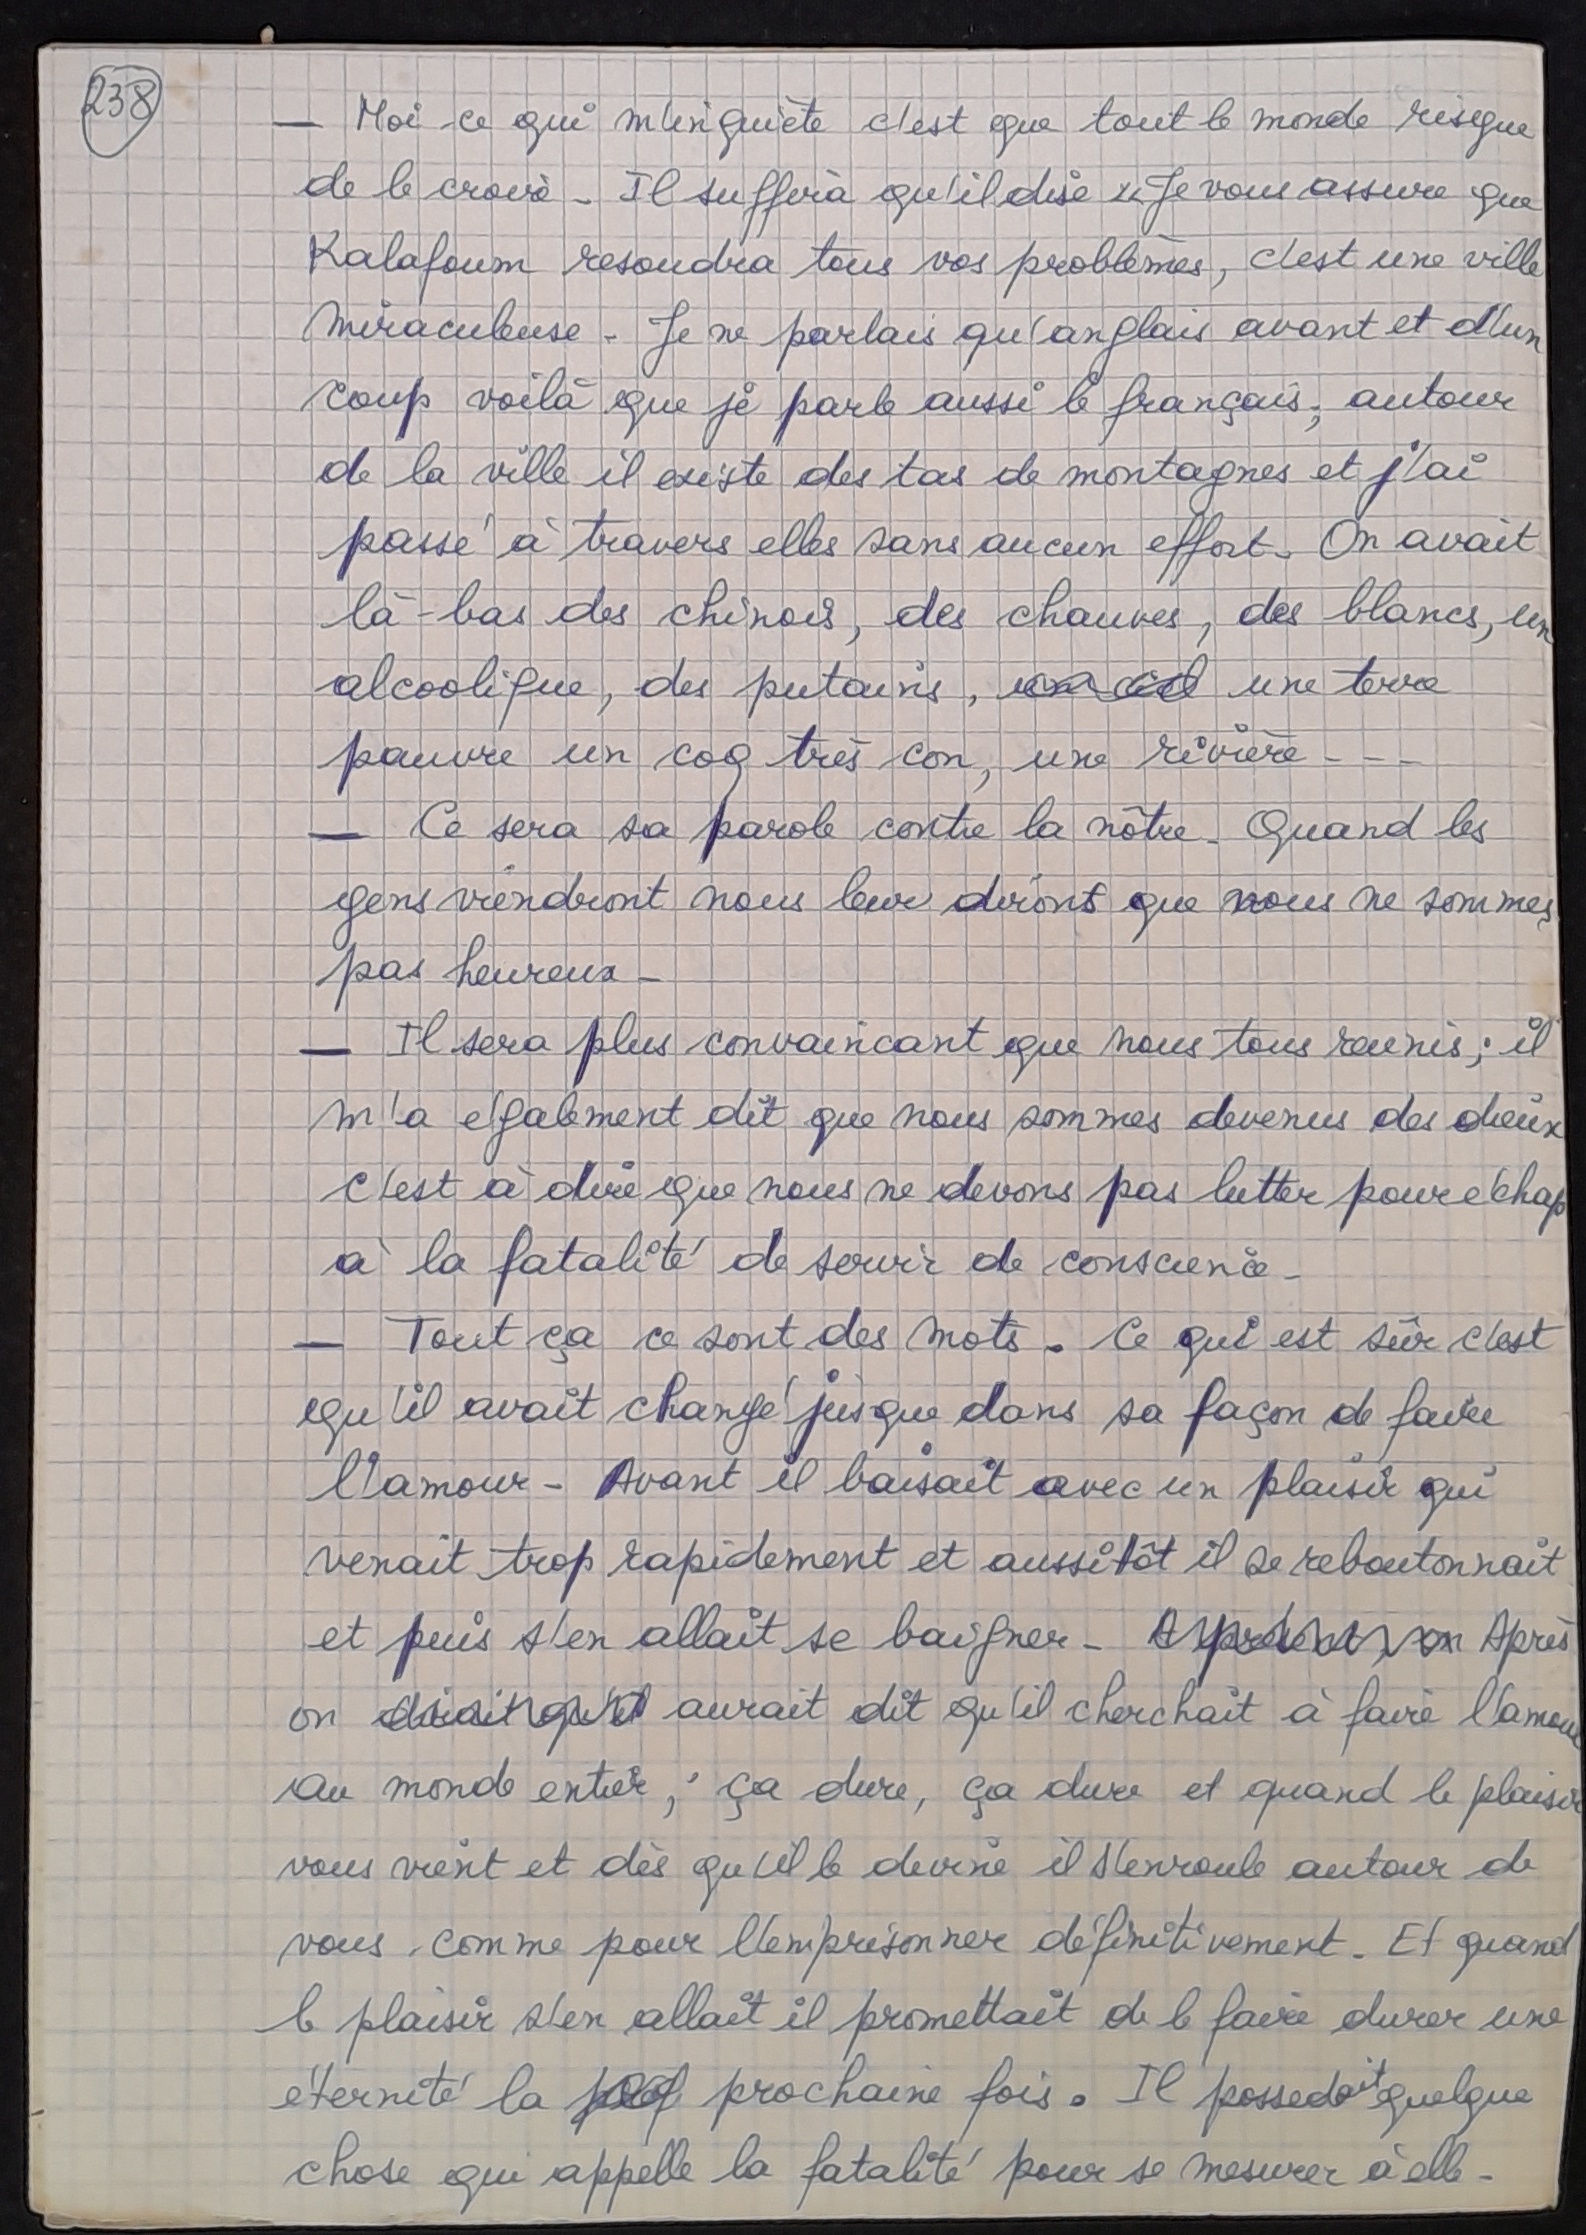 238
— Moi ce qui m'inquiète c'est que tout le monde risque
de le croire. Il suffira qu'il dise « Je vous assure que
Kalafoum resoudra tous vos problèmes, c'est une ville
miraculeuse. Je ne parlais qu'anglais avant et d'un
coup voilà que je parle aussi le français; autour
de la ville il existe des tas de montagnes et j'ai
passé à travers elles sans aucun effort. On avait
là-bas des chinois, des chauves, des blancs, un
alcoolique, des putains, une terre
pauvre un coq très con, une rivière - - -
— Ce sera sa parole contre la nôtre. Quand les
gens viendront nous leur dirons que nous ne sommes
pas heureux.
— Il sera plus convaincant que nous tous reunis; il
m'a également dit que nous sommes devenus des dieux
c'est à dire que nous ne devons pas lutter pour échap
à la fatalité de servir de conscience.
— Tout ça ce sont des mots. Ce qui est sûr c'est
qu'il avait changé jusque dans sa façon de faire
l'amour. Avant il baisait avec un plaisir qui
venait trop rapidement et aussitôt il se reboutonnait
et puis s'en allait se baigner. Après
on dirait qu'il aurait dit qu'il cherchait à faire l'amour
au monde entier; ça dure, ça dure et quand le plaisir
vous vient et dès qu'il le devine il s'enroule autour de
vous comme pour l'emprisonner définitivement. Et quand
le plaisir s'en allait il promettait de le faire durer une
éternité la prochaine fois. Il possedait quelque
chose qui appelle la fatalité pour se mesurer à elle.